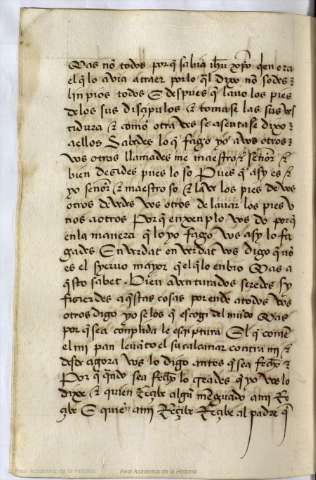 mas no todos por q̃ sabia ihũ xp̃o quien era
el q̃ lo avia a traer por lo q̃l dixo no sodes
linpios todos E despues q̃ lavo los pies
de los sus disçipulos & tomase las sus ves
tidura & como otra ves se asentase dixo
aellos Sabedes lo q̃ fago yo a vos otros
vos otros llamades me maestro & señor &
bien decides pues lo so Pues q̃ asy es &
yo señor & maestro so & lave los pies de vos
otros devedes vos otros de lavar los pies v
nos a otros Por q̃ enxenplo vos do por q̃
en la manera q̃ lo yo fago vos asy lo fa
gades En verdat en verdat vos digo q̃ no
es el syervo mayor q̃ el q̃ lo enbio Mas a
questo sabet Bien aventurados seredes sy
fisierdes aq̃stas cosas por ende a todos vos
otros digo yo se los q̃ escogi del mundo Mas
por q̃ sea conplida le escriptura El q̃ come
el mi pan levanto el su calcañar contra mi &
desde agora vos lo digo antes q̃ sea fecho &
Por q̃ q̃ndo sea fecho lo creades q̃ yo vos lo
dixe & quien Resçibe algũ mẽguado a mi Re
çibe E quien a mi Reçibe Reçibe al padre q̃
Real Academia de la Historia
Real Academia de la Historia